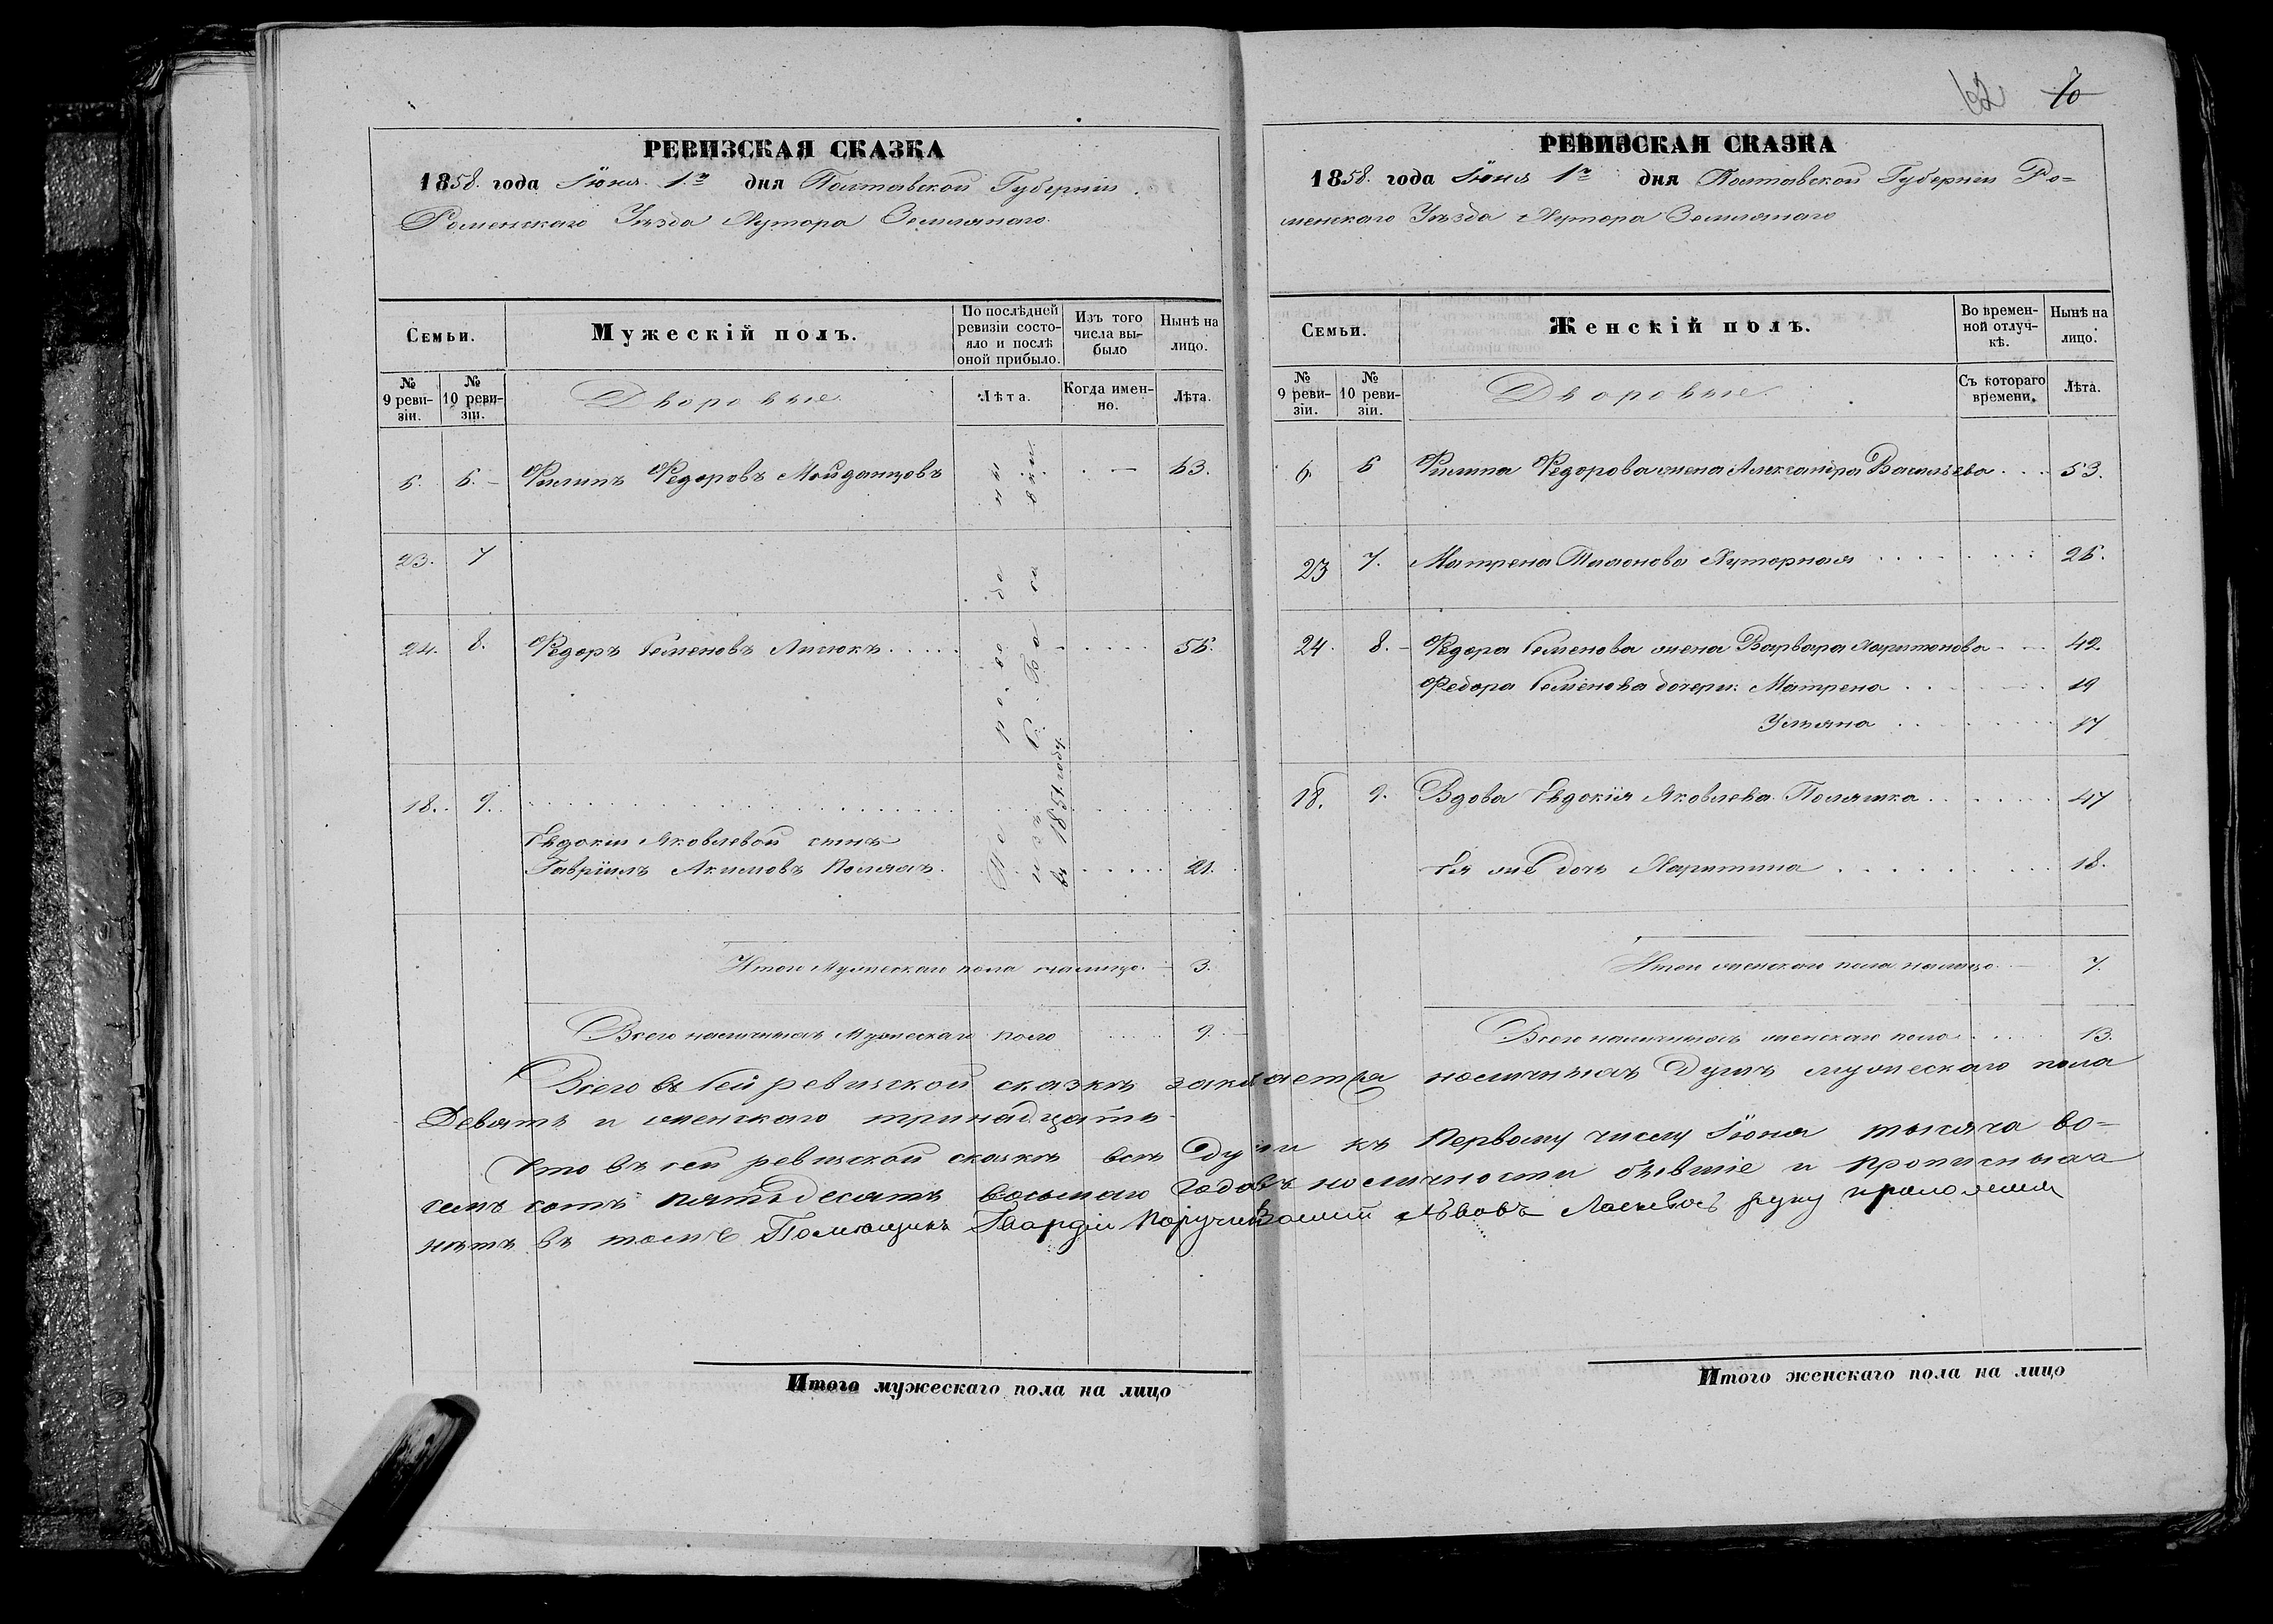 РЕВИЗСКАЯ СКАЗКА
1858. года Іюня 1го дня Полтавской Губерніи
Роменскаго Уѣзда Хутора Землянаго
Семьи.
Мужескій полъ.
По послѣдней ревизіи состояло и послѣ оной прибыло.
Изъ того числа выбыло
Нынѣ на лицо.
№ 9 ревизіи.
№ 10 ревизіи.
Дворовые
Лѣта.
Когда именно.
Лѣта.
6. Филипъ Федоровъ — 63.
23. 7
24. 8. Федоръ Семеновъ Лисюкъ
18. 9.
Евдокіи Яковлевой сынъ
Гавріилъ Акимовъ Полякъ 21.
въ 1851 году.
Итого Мужескаго пола налицо — 3.
Всего наличныхъ Мужескаго пола 9.
62 70
РЕВИЗСКАЯ СКАЗКА
1858. года Іюня 1го дня Полтавской Губерніи Ро=
менскаго Уѣзда Хутора Землянаго
Семьи.
Женскій полъ.
Во временной отлучкѣ.
Нынѣ на лицо.
№ 9 ревизіи.
№ 10 ревизіи.
Дворовые
Съ котораго времени.
Лѣта.
6 Филипа Федорова жена Александра Васильева 53.
23 7. Матрена Хуторная
24. 8. Федора Семенова жена Варвара Харитонова 42.
Федора Семенова дочери: Матрена 19
Ульяна 17
18. 9. Вдова Евдокія Яковлева Полячка 47
Ея же дочь Харитина 18.
Итого женскаго пола налицо — 7.
Всего наличныхъ женскаго пола 13.
Всего въ сей ревизской сказкѣ наличныхъ душъ мужескаго пола
Девять и женскаго тринадцать
Что въ сей ревизской сказкѣ всѣ души къ Первому числу Іюня тысяча во=
семь сотъ пятьдесятъ восьмаго года въ наличности бывшіе и прописныхъ
нѣтъ въ томъ Помѣщикъ Гвардіи Поручикъ Львовъ руку приложилъ
Итого мужескаго пола на лицо
Итого женскаго пола на лицо